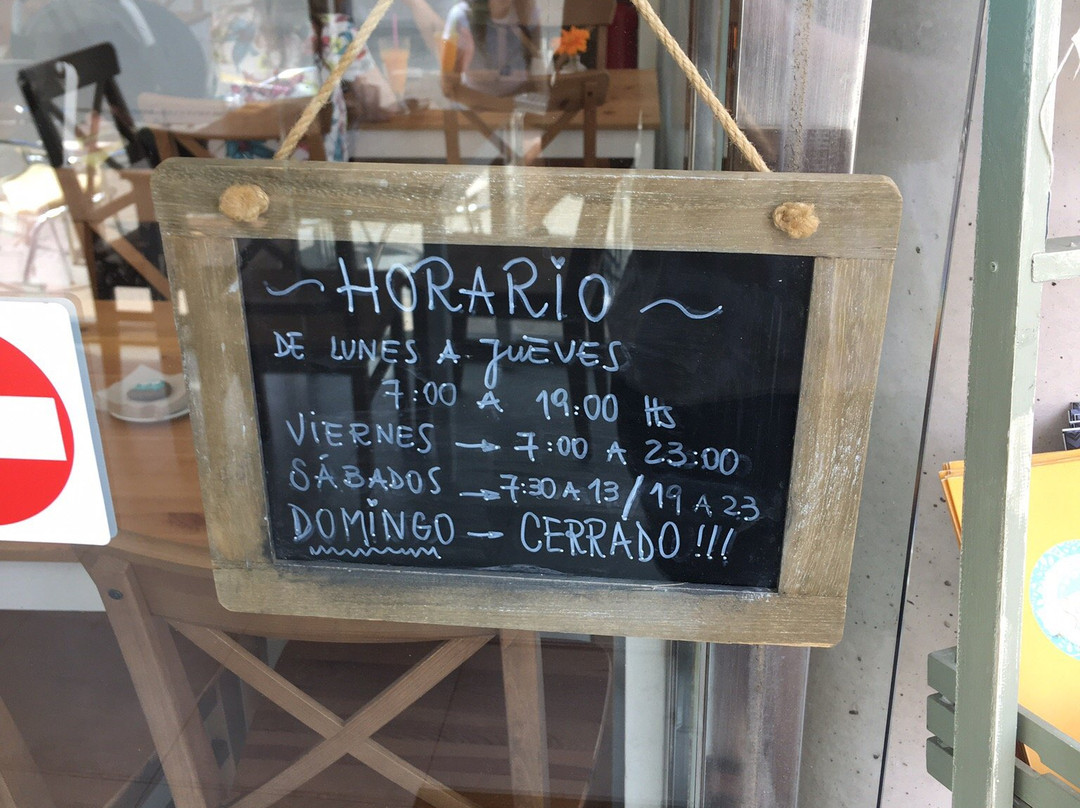 ~ HORARIO ~
DE LUNES A JUEVES
7:00 A 19:00 Hs
VIERNES → 7:00 A 23:00
SÁBADOS → 7:30 A 13 / 19 A 23
DOMINGO → CERRADO !!!